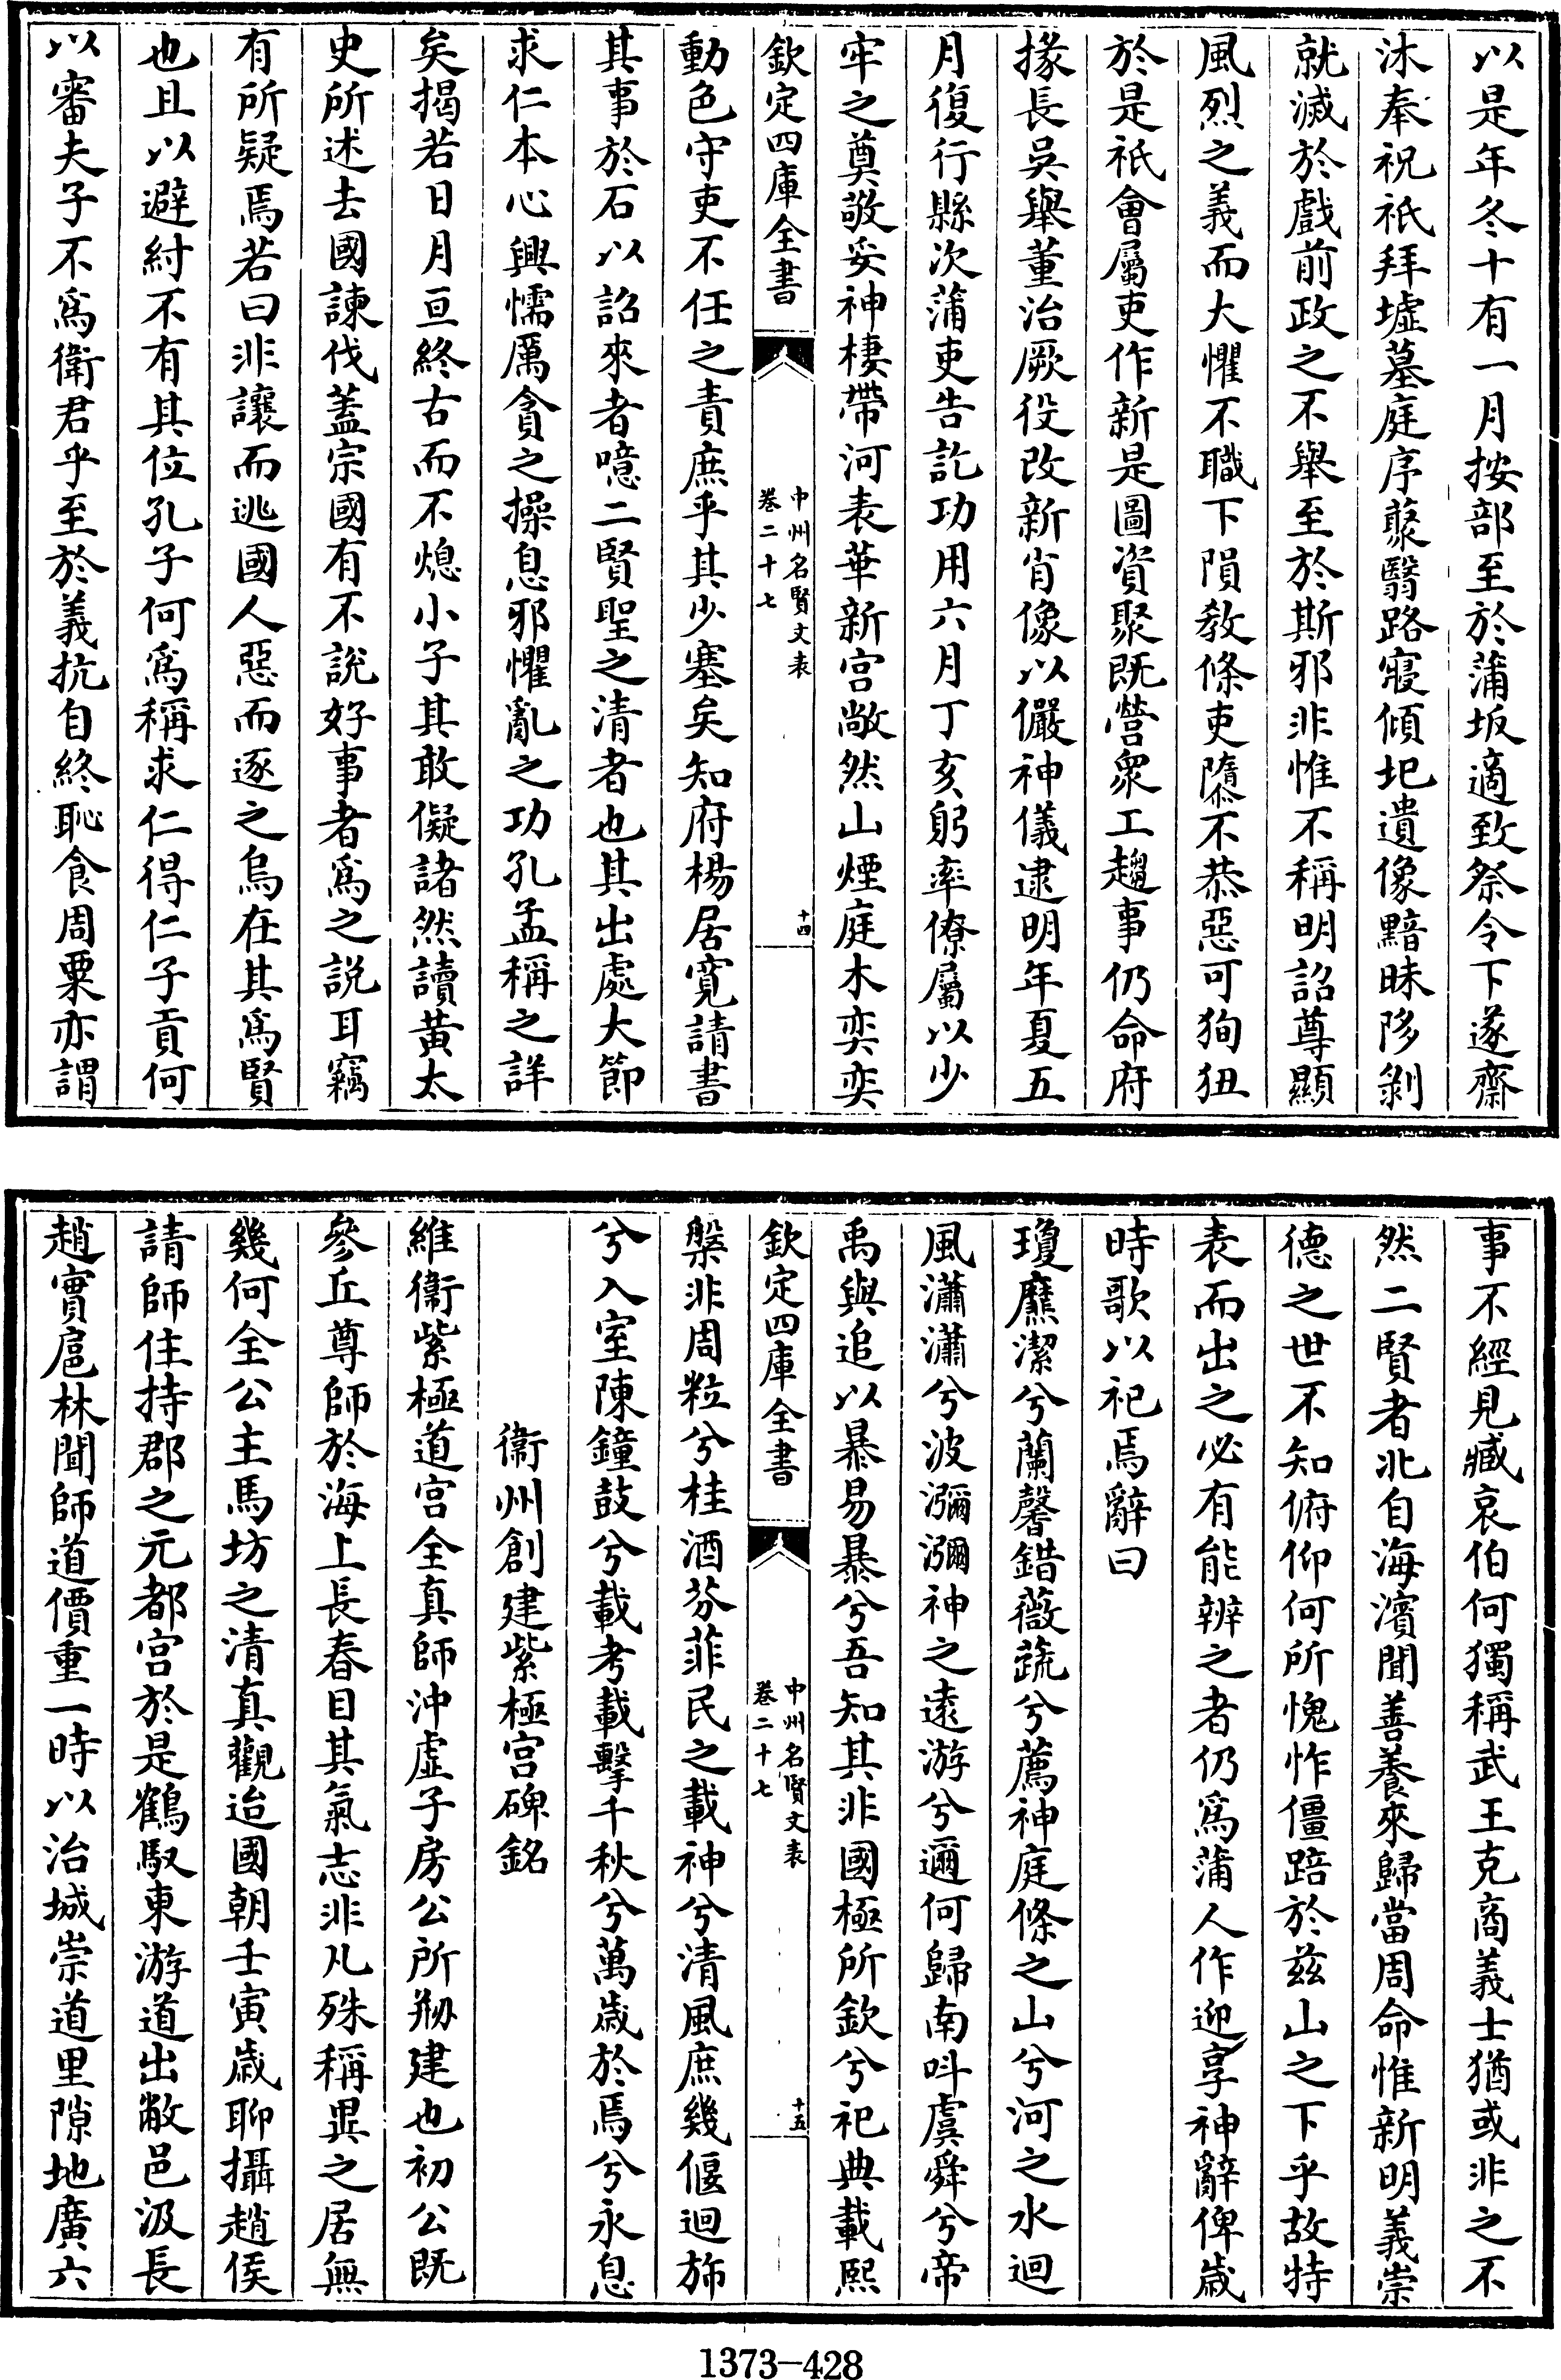 以是年冬十有一月按部至於蒲坂適致祭令下遂齋
沐奉祝祇拜墟墓庭序藂翳路寢傾圮遺像黯昧陊剝
就滅於戲前政之不舉至於斯邪非惟不稱明詔尊顯
風烈之義而大懼不職下隕敎條吏隳不恭惡可狥狃
於是祇會屬吏作新是圖資聚既營衆工趨事仍命府
掾長吳舉董治厥役改新肖像以儼神儀逮明年夏五
月復行縣次蒲吏告訖功用六月丁亥躬率僚屬以少
牢之奠敬妥神棲帶河表華新宫敞然山煙庭木奕奕
欽定四庫全書
中州名賢文表
卷二十七
十四
動色守吏不任之責庶乎其少塞矣知府楊居寛請書
其事於石以詔來者噫二賢聖之清者也其出處大節
求仁本心興懦厲貪之操息邪懼亂之功孔孟稱之詳
矣揭若日月亘終古而不熄小子其敢儗諸然讀黄太
史所述去國諫伐蓋宗國有不說好事者爲之說耳竊
有所疑焉若曰非讓而逃國人惡而逐之烏在其爲賢
也且以避紂不有其位孔子何爲稱求仁得仁子貢何
以審夫子不爲衛君乎至於義抗自終恥食周粟亦謂
事不經見臧哀伯何獨稱武王克商義士猶或非之不
然二賢者北自海濱聞善養來歸當周命惟新明義崇
德之世不知俯仰何所愧怍僵踣於兹山之下乎故特
表而出之必有能辨之者仍爲蒲人作迎享神辭俾歲
時歌以祀焉辭曰
瓊靡潔兮蘭馨錯薇蔬兮薦神庭條之山兮河之水迴
風瀟瀟兮波瀰瀰神之遠游兮邇何歸南呌虞舜兮帝
禹與追以暴易暴兮吾知其非國極所欽兮祀典載熙
欽定四庫全書
中州名賢文表
卷二十七
十五
槃非周粒兮桂酒芬菲民之載神兮清風庶幾偃迴斾
兮入室陳鐘鼓兮載考載擊千秋兮萬歲於焉兮永息
衞州創建紫極宫碑銘
維衞紫極道宫全真師沖虛子房公所剏建也初公既
參丘尊師於海上長春目其氣志非凡殊稱異之居無
幾何全公主馬坊之清真觀迨國朝壬寅歲聊攝趙侯
請師住持郡之元都宫於是鶴馭東游道出敝邑汲長
趙實扈林聞師道價重一時以治城崇道里隙地廣六
1373—428